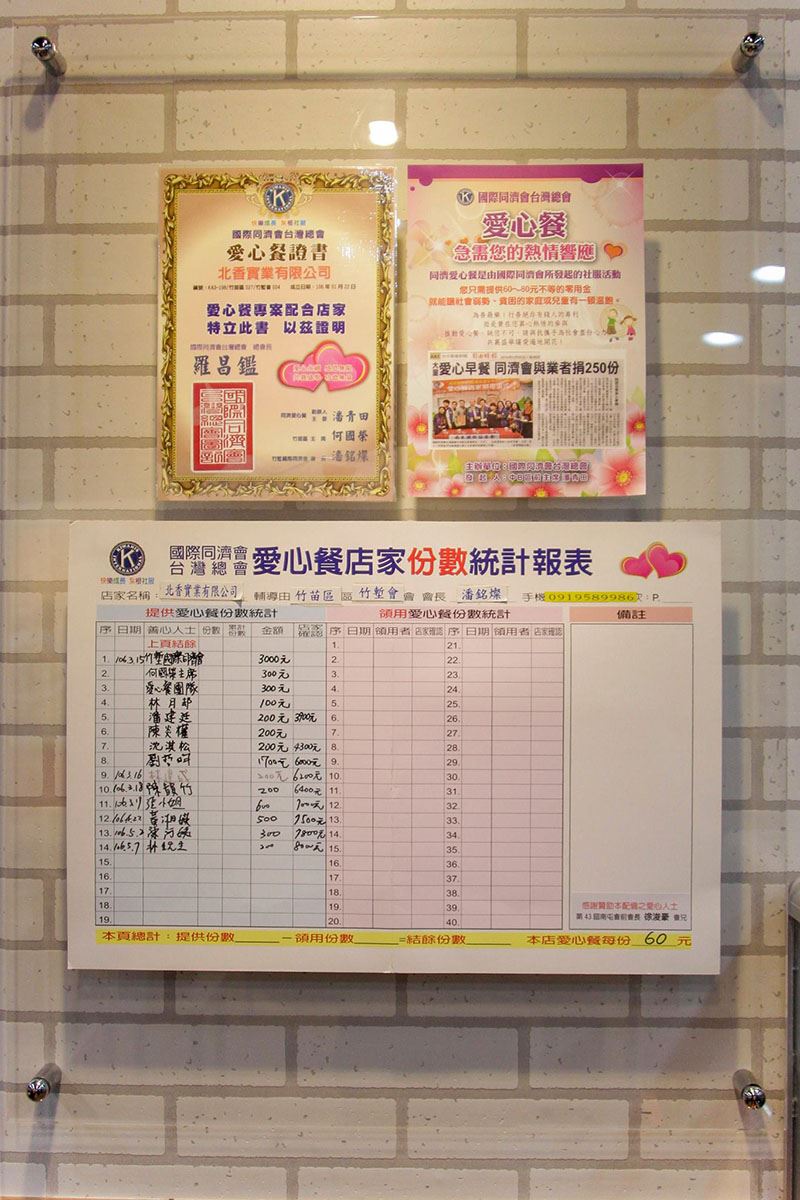 快樂成長 灰根社服
國際同濟會台灣總會
愛心餐證書
北香實業有限公司
愛心餐專案配合店家
特立此書 以茲證明
國際同濟會台灣總會 總會長
羅昌鑑
同濟愛心餐
潘青田
何國榮
潘銘燦
國際同濟會台灣總會
愛心餐
急需您的熱情響應
同濟愛心餐是由國際同濟會所發起的社服活動
您只需提供60～80元不等的零用金
就能讓社會弱勢、貧困的家庭或兒童有一頓溫飽。
愛心早餐 同濟會與業者捐250份
主辦單位：國際同濟會台灣總會
發起人：中B區前主席潘青田
國際同濟會
台灣總會
愛心餐店家份數統計報表
店家名稱：北香實業有限公司 輔導由 竹苗區 區 竹塹會 會 會長 潘銘燦 手機0919589986
提供愛心餐份數統計 領用愛心餐份數統計 備註
序 日期 善心人士 份數 累計份數 金額 店家確認 序 日期 領用者 店家確認 序 日期 領用者 店家確認
上頁結餘 1. 21.
1. 106.3.15 竹塹國際同濟會 3000元 2. 22.
2. 何國榮主席 300元 3. 23.
3. 愛心餐團隊 300元 4. 24.
4. 100元 5. 25.
5. 潘建廷 200元 3900元 6. 26.
6. 陳炎權 200元 7. 27.
7. 沈淇松 200元 4300元 8. 28.
8. 1700元 6000元 9. 29.
9. 106.3.16 200元 6200元 10. 30.
10. 106.3.18 200 6400元 11. 31.
11. 張小姐 600 7000元 12. 32.
12. 500 7500元 13. 33.
13. 106.5.2 300 7800元 14. 34.
14. 106.5.7 200 8000元 15. 35.
15. 16. 36.
16. 17. 37.
17. 18. 38.
18. 19. 39.
19. 20. 40.
感謝贊助本配備之愛心人士
第43屆南屯會前會長 徐浚豪 會兄
本頁總計：提供份數 －領用份數 =結餘份數 本店愛心餐每份 60 元